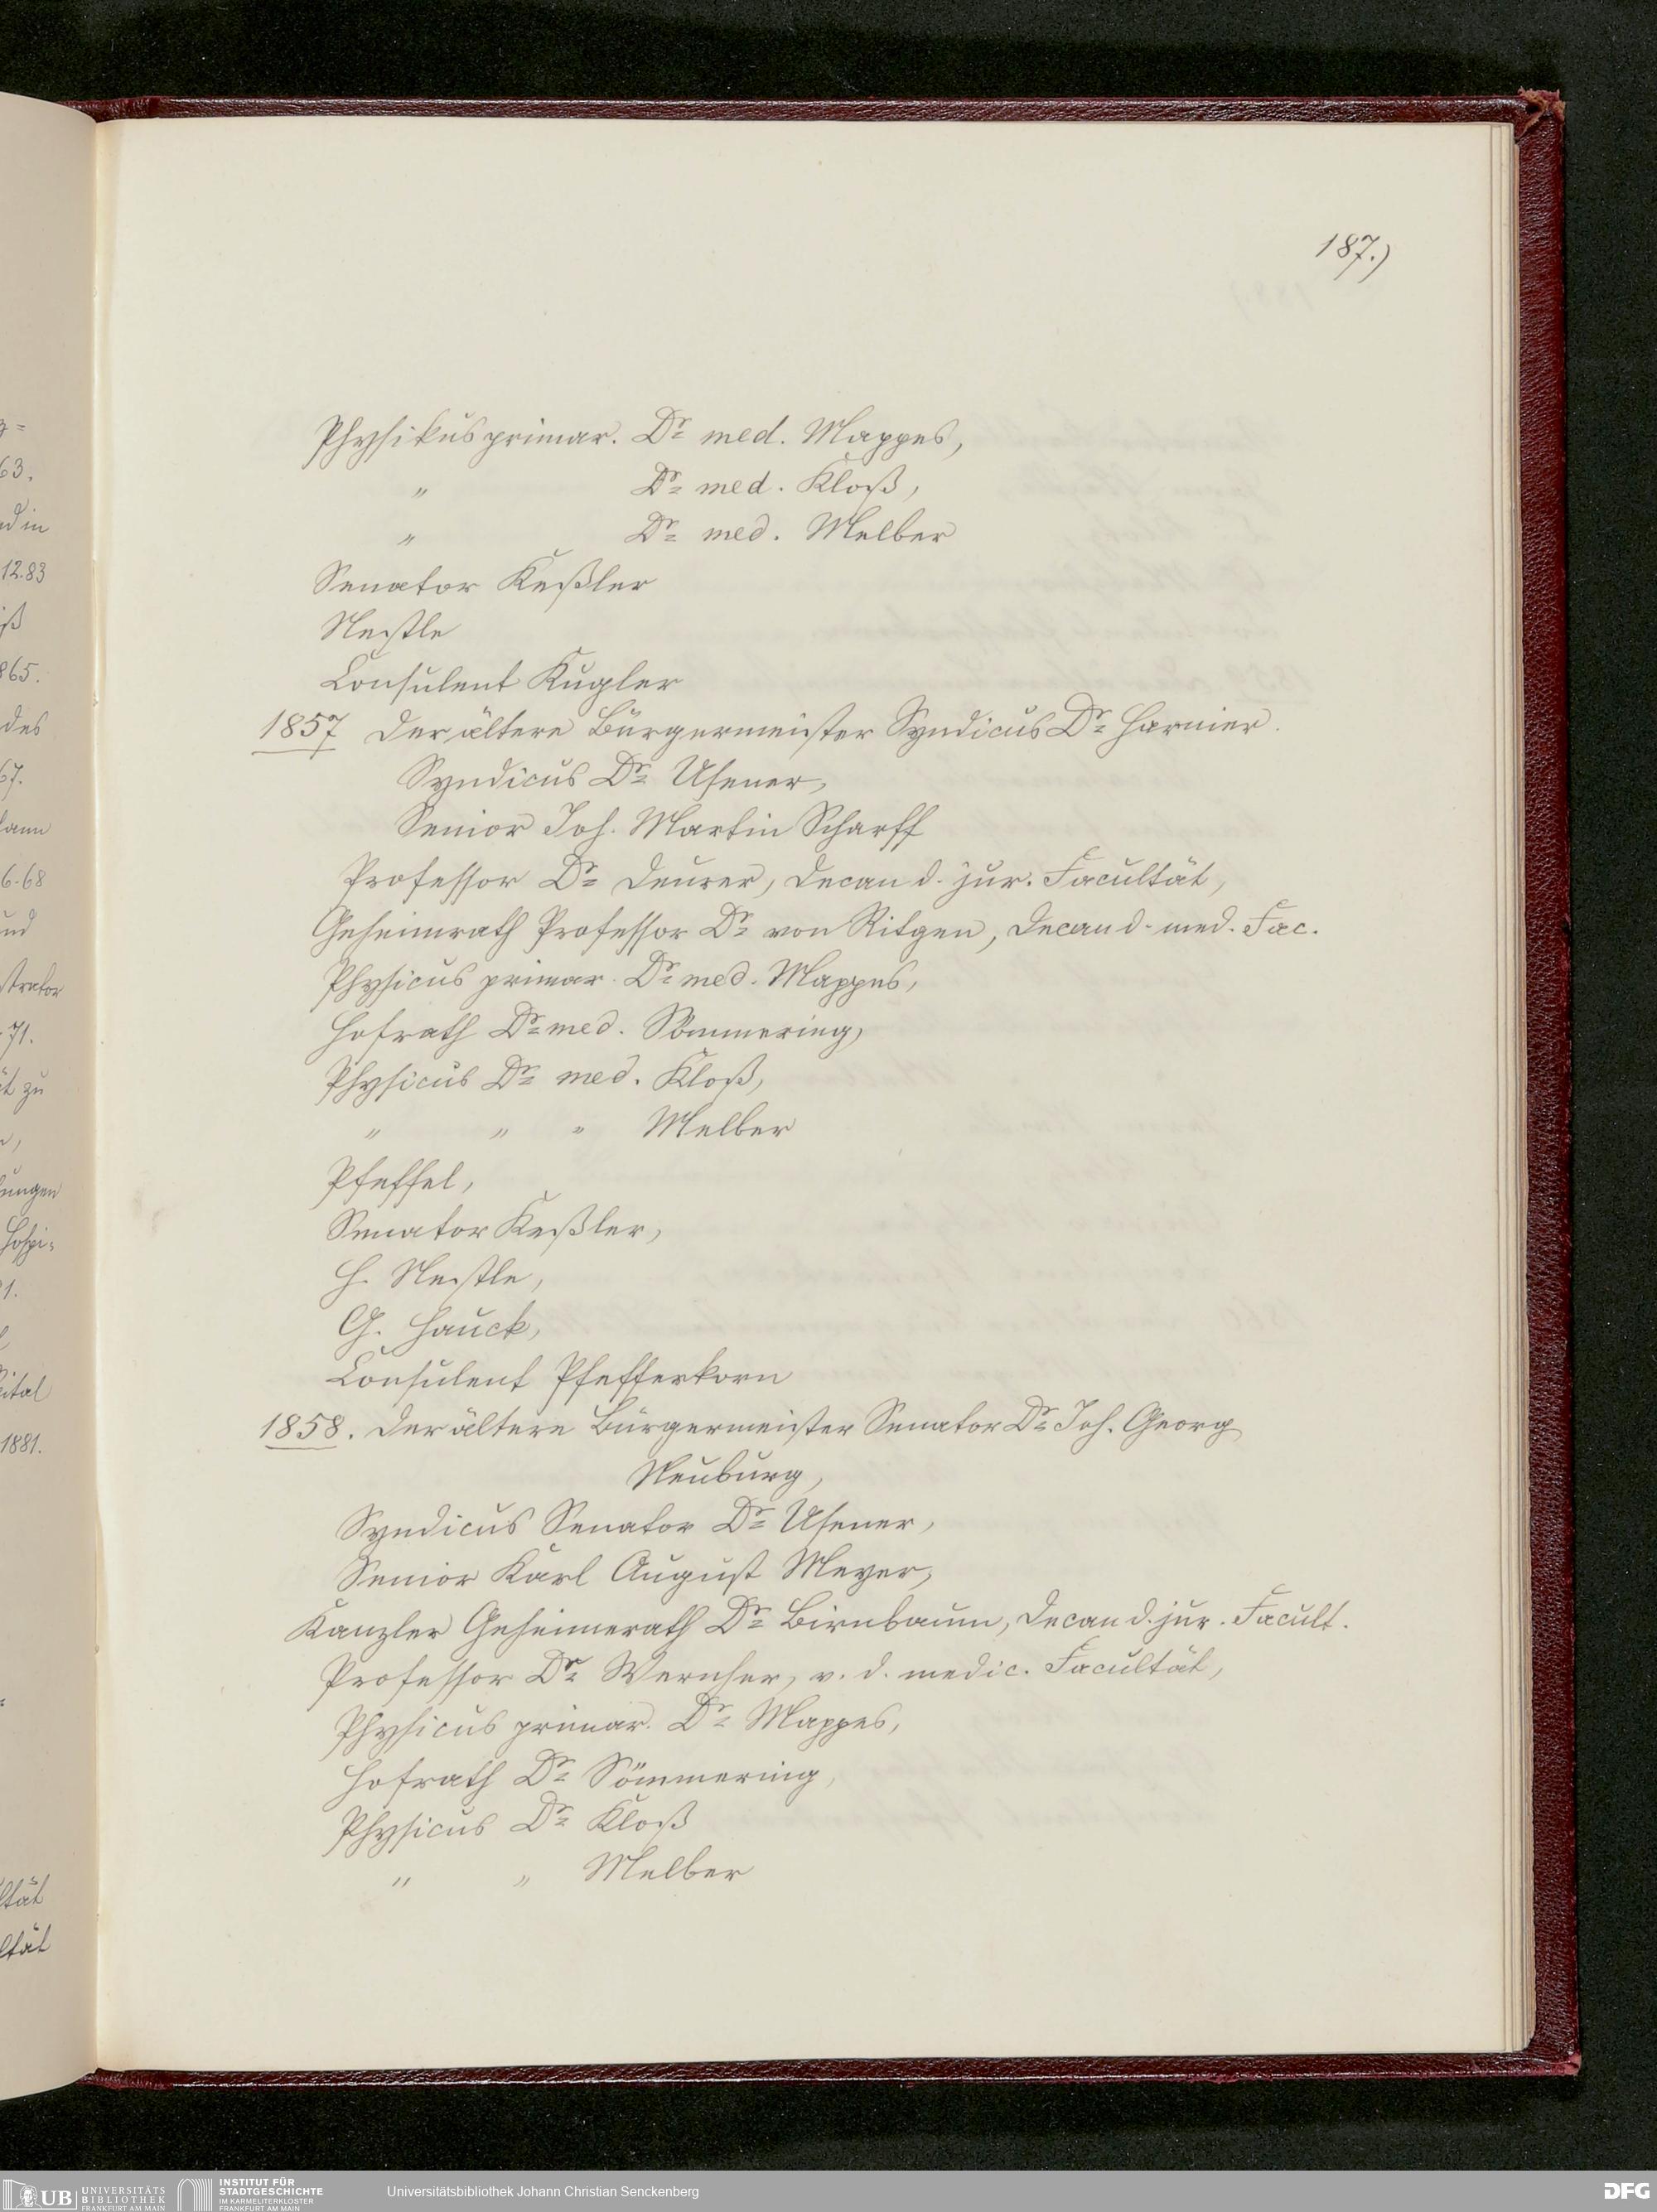 187.)
Physikus primar. Dr med. Mappes,
" Dr med. Kloß,
" Dr med. Melber
Senator Keßler
Nestle
Consulent Kugler
1857 Der ältere Bürgermeister Syndicus Dr Harnier.
Syndicus Dr Usener,
Senior Joh. Martin Scharff
Professor Dr Deurer, Decan d. jur. Facultät,
Geheimrath Professor Dr von Ritgen, Decan d. med. Fac.
Physicus primar. Dr med. Mappes,
Hofrath Dr med. Sömmering,
Physicus Dr med. Kloß,
" " " Melber
Pfeffel,
Senator Keßler,
H. Nestle,
G. Hauck,
Consulent Pfefferkorn
1858. Der ältere Bürgermeister Senator Dr Joh. Georg
Neuburg,
Syndicus Senator Dr Usener,
Senior Karl August Meyer,
Kanzler Geheimerath Dr Birnbaum, Decan d. jur. Facult.
Professor Dr Wernher, v. d. medic. Facultät,
Physicus primar. Dr Mappes,
Hofrath Dr Sömmering,
Physicus Dr Kloß
" " Melber
63.
12.83
865.
des
67.
6.68
und
71.
1.
1881.
UB UNIVERSITÄTS
BIBLIOTHEK
FRANKFURT AM MAIN
INSTITUT FÜR
STADTGESCHICHTE
IM KARMELITERKLOSTER
FRANKFURT AM MAIN
Universitätsbibliothek Johann Christian Senckenberg
DFG